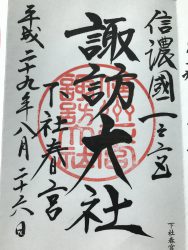 信濃國一之宮
諏訪大社
下社春宮
平成二十九年八月二十六日
下社春宮